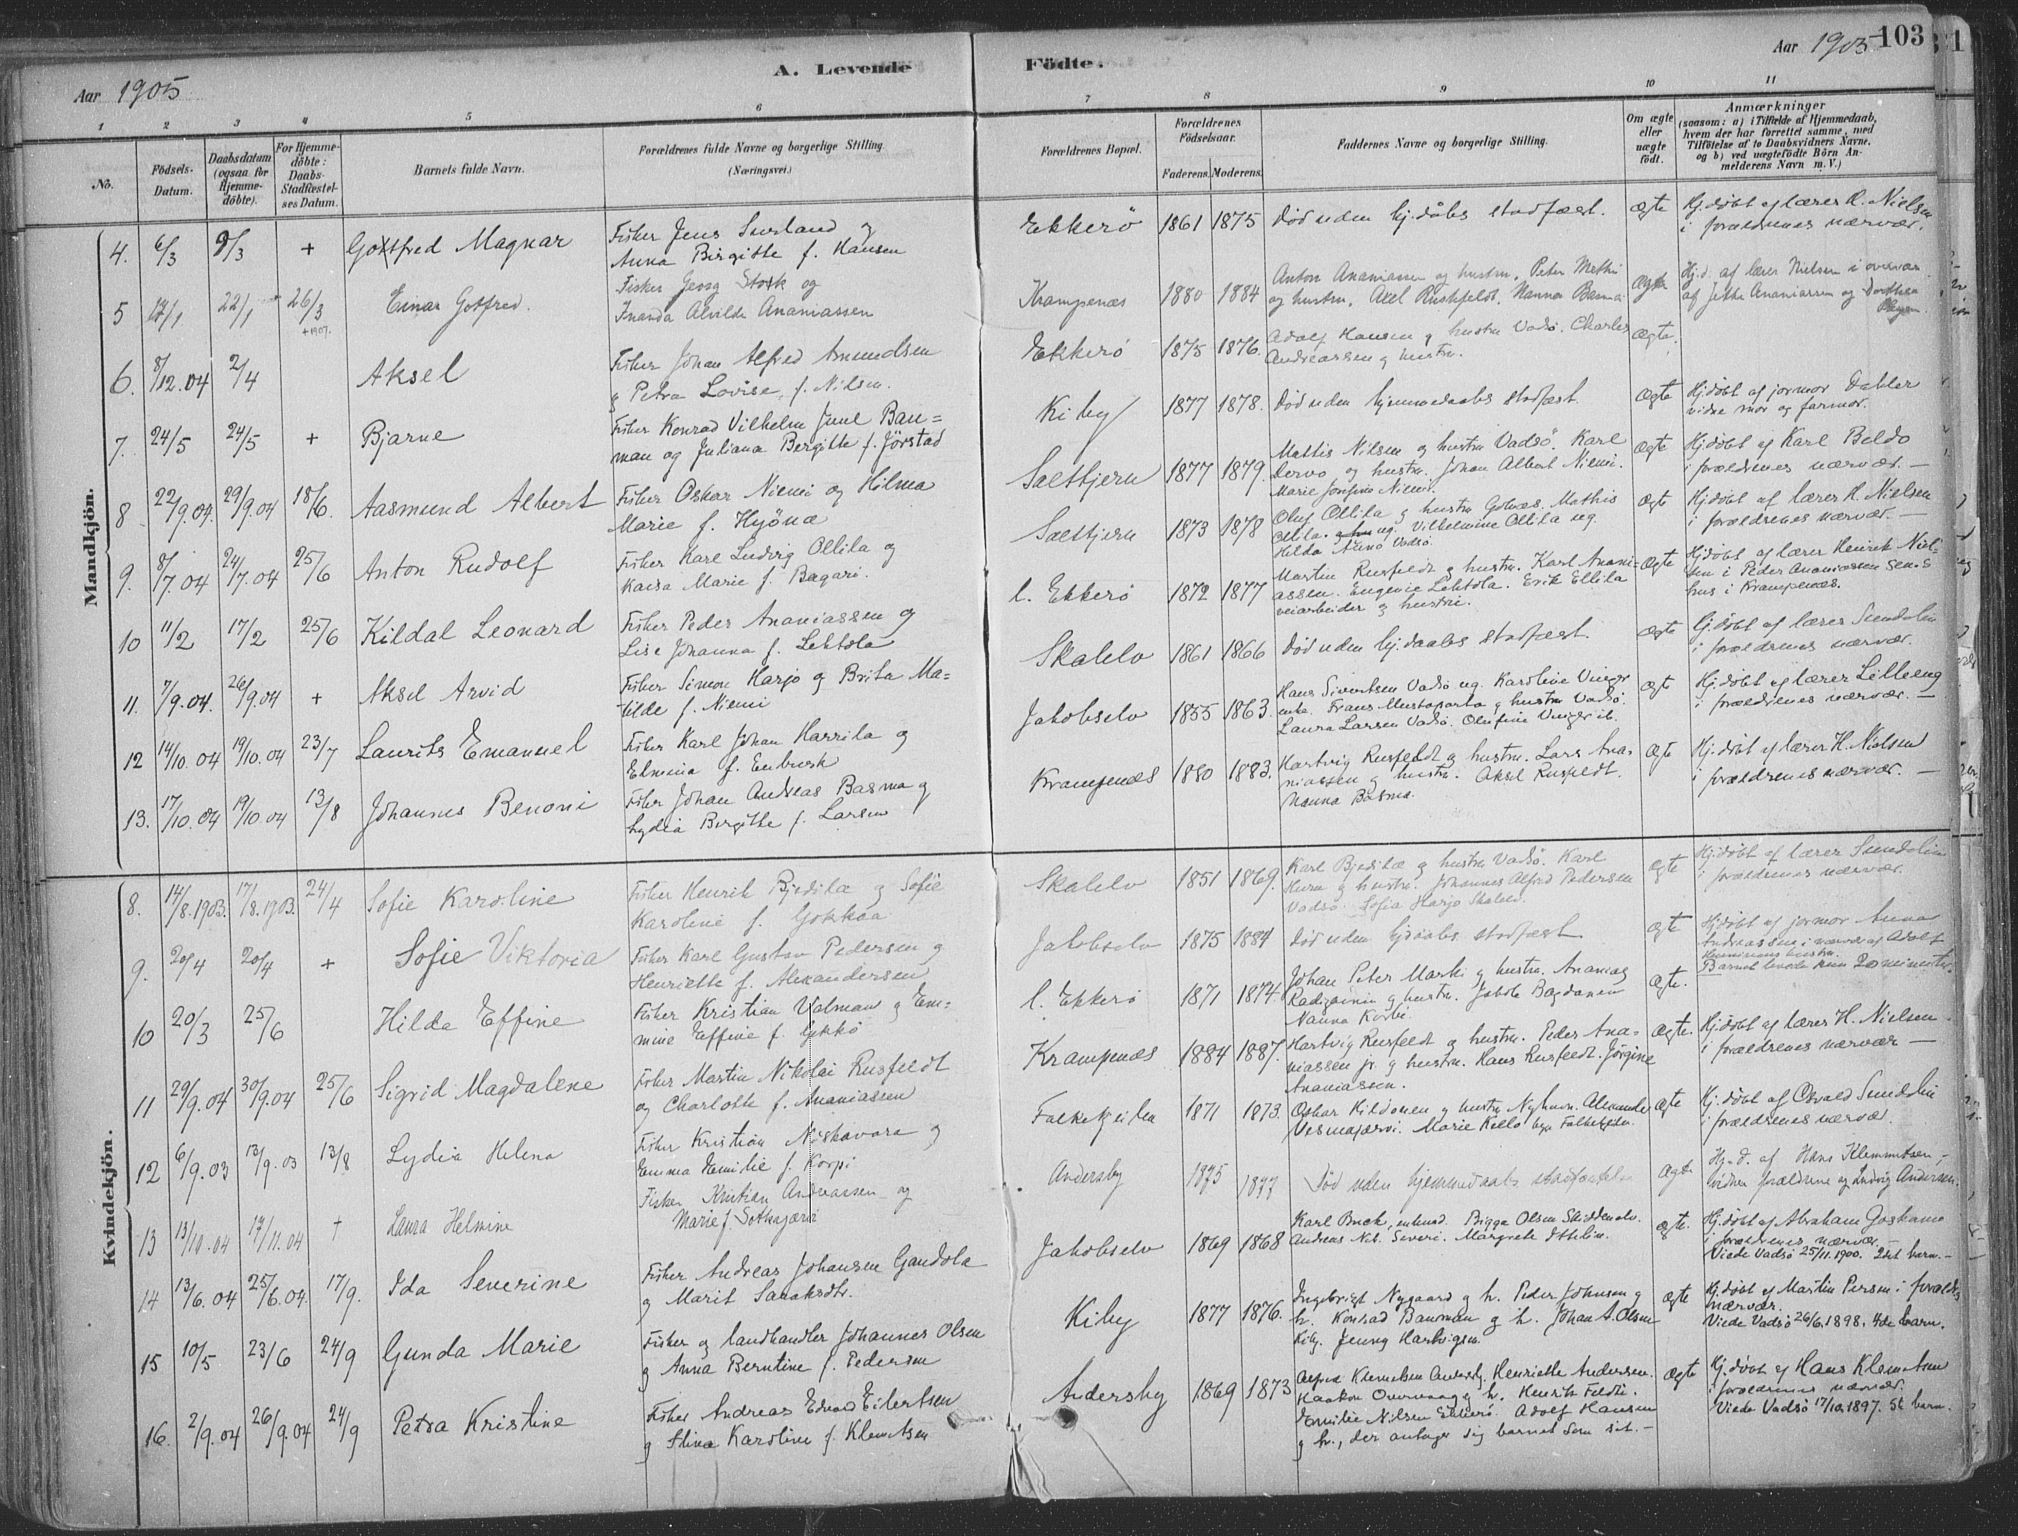 Aar 1905
A. Levende
Födte.
Aar 1905
103
1 2 3 4 5 6 7 8 9 10 11
No.
Födsels-Datum.
Daabsdatum (ogsaa for Hjemmedöbte).
For Hjemmedöbte: Daabs-Stadfæstelses Datum.
Barnets fulde Navn.
Forældrenes fulde Navne og borgerlige Stilling (Næringsvei.)
Forældrenes Bopæl.
Forældrenes Födselsaar.
Faderens. Moderens.
Faddernes Navne og borgerlige Stilling.
Om ægte eller uægte födt.
Anmærkninger
(saasom: a) i Tilfælde af Hjemmedaab, hvem der har forrettet samme, med Tilföielse af to Daabsvidners Navne, og b) ved uægtefödte Börn Anmelderens Navn m. V.)
Mandkjön.
4. 6/3 9/3 + Gottfred Magnar
Fisker Jens Sursland og
Anna Birgitte f. Hansen
Ekkerö 1861 1875 Död uden hj.döbs stadfæst. ægte
Hj.döbt af lærer H. Nielsen
i forældrenes nærvær.
5 17/1 22/1 26/3 Einar Gotfred.
+1907.
Fisker Georg Stock og
Inanda Alvilde Ananiassen
Krampenæs 1880 1884
Anton Ananiassen og hustru, Peter Mathi
og hustru, Axel Rushfeldt, Nanna Basma
ægte
Hj.d. af lærer Nielsen i overvær
af Jethe Ananiassen og Dorthea
6. 8/12.04 2/4 Aksel
Fisker Johan Alfred Amundsen
g Petra Lovise, f. Nilsen.
Ekkerö 1875 1876.
Adolf Hansen g hustru Vadsö. Charles
Andreassen g hustru.
ægte.
7. 24/5 24/5 + Bjarne
Fisker Konrad Vilhelm Juul Bau=
man og Juliana Bergitte f. Jörstad
Kiby 1877 1878. Död uden hjemmedaabs stadfæst. Ægte
Hj.döbt af jormor Dahler
vidne mor og farmor.
8 22/9.04. 29/9.04 18/6. Aasmund Albert
Fisker Oskar Niemi og Hilma
Marie f. Hyönæ
Saltbjern 1877 1879.
Mattis Nilsen g hustru Vadsö. Karl
Dervo og hustru. Johan Albert Niemi.
Marie Josefine Niemi.
ægte
Hj.döbt af Karl Beldo
i forældrenes nærvær. —
9. 8/7.04 24/7.04 25/6 Anton Rudolf
Fisker Karl Ludvig Ollila og
Kaisa Marie f. Bagari.
Saltbjern 1873 1878
Oluf Ollila g hustru Golnæs. Mathis
Ollila. ug. Vilhelmine Ollila ug.
Hilda Aunö Vadsö.
ægte
Hj.döbt af lærer H. Nielsen
i forældrenes nærvær. —
10 11/2 17/2 25/6 Kildal Leonard
Fisker Peder Ananiassen og
Lise Johanna f. Lehtola
l. Ekkerö 1872 1877
Martin Rusfeldt g hustru. Karl Anani-
assen. Eugenie Lehtola. Erik Ellila
veiarbeider g hustru.
Ægte
Hj.döbt af lærer Henrik Niel-
sen i Peder Ananiassen sen.s
hus i Krampenæs.
11. 7/9.04. 26/9.04 + Aksel Arvid
Fisker Simon Harjo g Brita Ma=
tilde f. Niemi
Skallelv 1861 1866 Död uden hj.daabs stadfæst. Ægte
Hj.döbt af lærer Sundelin
i forældrenes nærvær.
12 14/10.04 19/10.04 23/7 Laurits Emanuel
Fisker Karl Johan Harrila og
Elmina f. Enbusk
Jakobselv 1855 1863.
Hans Sivertsen Vadsö ug. Karoline Vinger
enke. Frans Mustaparta g hustru Vadsö.
Laura Larsen Vadsö. Olufine Vinger ib.
Ægte
Hj.döbt af lærer Lilleeng
i forældrenes nærvær. —
13. 17/10.04 19/10.04 13/8 Johannes Benoni
Fisker Johan Andreas Basma g
Lydia Birgitte f. Larsen
Krampenæs 1880 1883.
Hartvig Rusfeldt g hustru. Lars Ana-
niassen g hustru. Aksel Rusfeldt.
Nanna Basma.
Ægte
Hj.döbt af lærer H. Nielsen
i forældrenes nærvær. —
Kvindekjön.
8. 14/8.1903. 17/8.1903. 24/4 Sofie Karoline
Fisker Henrik Bjedila g Sofie
Karoline f. Gokkoa
Skallelv 1851 1869.
Karl Bjedilæ g hustru Vadsö. Karl
Hurn g hustru. Johannes Alfred Pedersen
Vadsö. Sofia Harjo Skallelv.
ægte
Hj.döbt af lærer Sundelin
i forældrenes nærvær.
9. 20/4 20/4 + Sofie Viktoria
Fisker Karl Gustav Pedersen g
Henriette f. Alexandersen
Jakobselv 1875 1884 Död uden hjdaabs stadfæst ægte
Hj.döbt af jormor Anna
Andreassen i nærvær af Adolf
Henninens hustru.
Barnet levede kun 20 minutter.
10 20/3 25/6 Hilda Effine
Fisker Kristian Valman g Em=
mine Effine f. Lykkö
l. Ekkerö 1871 1874.
Johan Peter Marki g hustru. Ananias
Radigoinin g hustru. Jakob Bogdanin
Nanna Korbi.
Ægte.
11 29/9.04 30/9.04 25/6 Sigrid Magdalene
Fisker Martin Nikolai Rusfeldt
og Charlotte f. Ananiassen
Krampenæs 1884 1887.
Hartvig Rusfeldt g hustru. Peder Ana=
niassen jr. g hustru. Hans Rusfeldt. Jörgine
Ananiassen.
Ægte.
Hj.döbt af lærer H. Nielsen
i forældrenes nærvær —
12 6/9.03 13/9.03 13/8 Lydia Helena
Fisker Kristian Niskavara g
Emma Emilie f. Korpi
Falkefjellen 1871 1873.
Oskar Kildonen g hustru Nyhavn. Alexander
Vesmajærvi. Marie Kello
ægte
Hj.döbt af Osvald Sundelin
i forældrenes nærvær.
13 13/10.04 17/11.04 + Laura Helmine
Fisker Kristian Andreassen og
Marie f. Sotkajærvi
Andersby 1875 1877 Död uden hjemmedaabs stadfæstelse Ægte
Hj.d. af Hans Klemmetsen,
vidner forældrene og Ludvig Andersen.
14 13/6.04 25/6.04. 17/9. Ida Severine
Fisker Andreas Johansen Gandola
g Marit Sarakrdtr.
Jakobselv 1869 1868
Karl Buck, enkemd. Brigga Olsen Skiddenelv.
Andreas Nils. Severi. Margrete Ittelin.
ægte.
Hj.döbt af Abraham Joskamo
i forældrenes nærvær. —
Viede Vadsö 25/11.1900. 2det barn.—
15 10/5 23/6 24/9 Gunda Marie
Fisker og landhandler Johannes Olsen
g Anna Berntine f. Pedersen
Kiby 1877 1876.
Ingebrigt Nygaard g h. Peder Johnsen g
h. Konrad Bauman g h. Johan A. Olsen
Kiby. Jenny Hartvigsen.
ægte
Hj.döbt af Martin Persen i foræld.s
nærvær.
Viede Vadsö 26/6.1898. 4de barn.
16. 2/9.04 26/9.04 24/9 Petra Kristine
Fisker Andreas Edvard Eilertsen
g Stina Karoline f. Klemetsen
Andersby 1869 1873
Alfred Klemetsen Andersby. Henriette Andersen.
Haakon Overvaag g h. Henrik Feldti.
Emilie Nilsen Ekkerö. Adolf Hansen
g h., der antager sig barnet som sit.—
ægte
Hj.döbt af Hans Klemetsen
i forældrenes nærvær.
Viede Vadsö 17/10.1897. 5t barn.